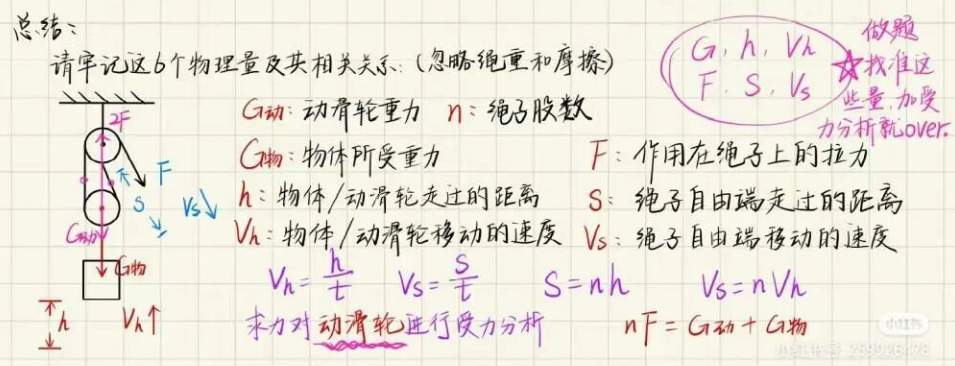 总结：
请牢记这6个物理量及其相关关系：（忽略绳重和摩擦）
G, h, Vh
F, S, Vs
做题
☆找准这
些量，加受
力分析就over.
G动：动滑轮重力 n：绳子股数
G物：物体所受重力 F：作用在绳子上的拉力
h：物体/动滑轮走过的距离 S：绳子自由端走过的距离
Vh：物体/动滑轮移动的速度 Vs：绳子自由端移动的速度
2F
F
S
Vs
G动
G物
h
Vh↑
Vh=h/t Vs=S/t S=nh Vs=nVh
求力对动滑轮进行受力分析 nF=G动+G物
小红书